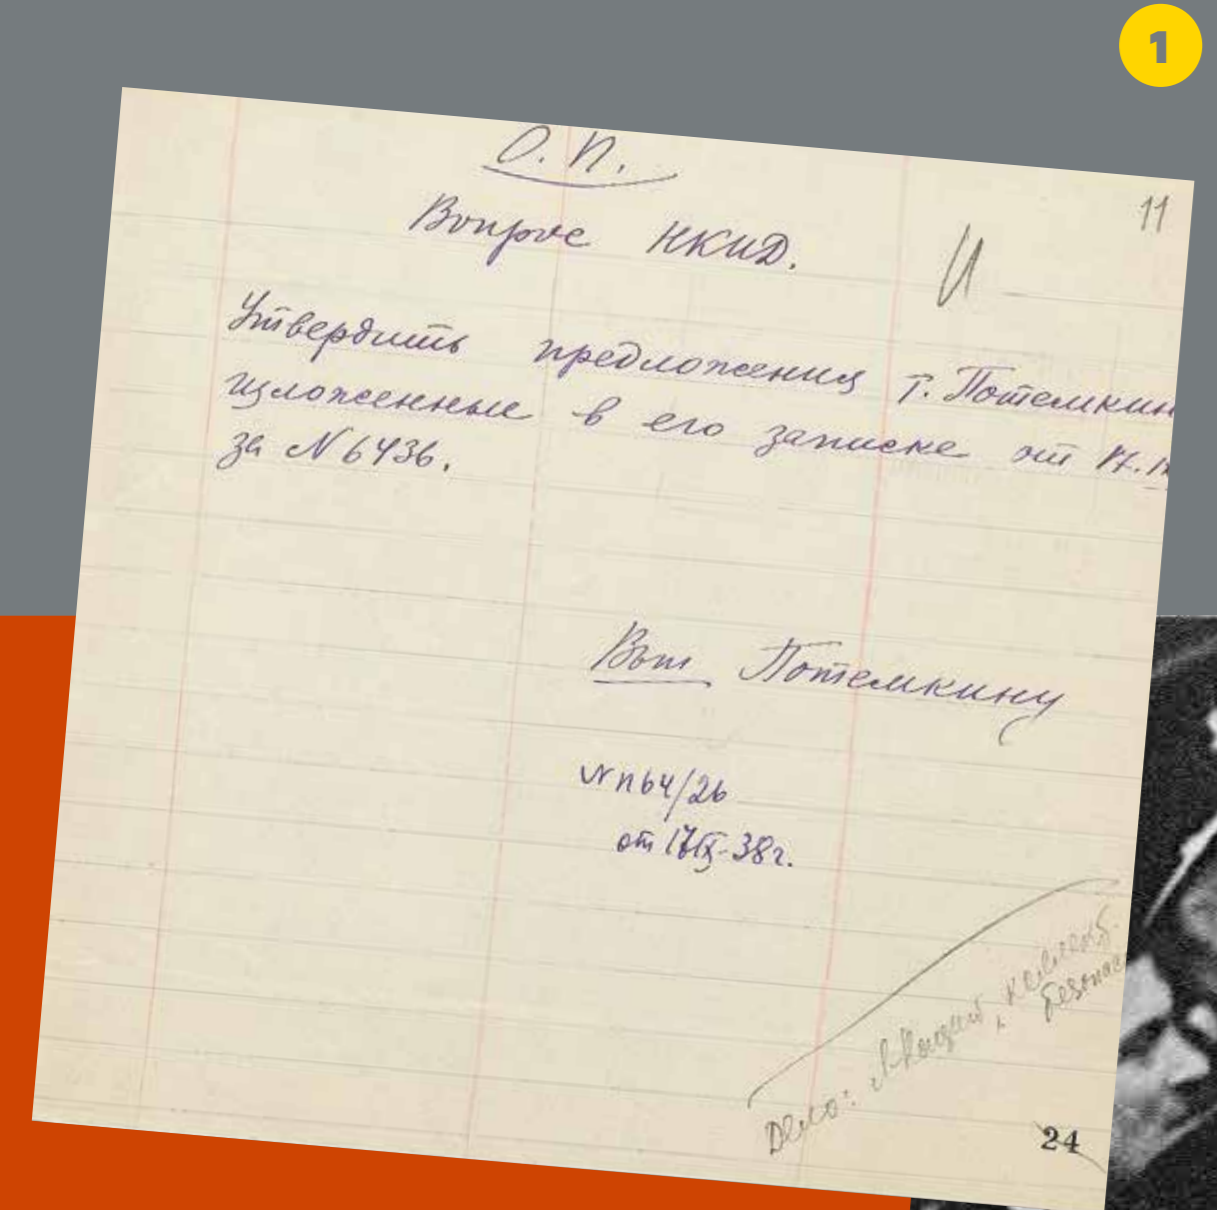 1
О. П.
11
Вопрос НКИД.
Утвердить предложения т. Потемкин
изложенные в его записке от 17.
за № 6436.
Вып Потемкину
№ П64/26
от 17/IX-38г.
Дело:
24